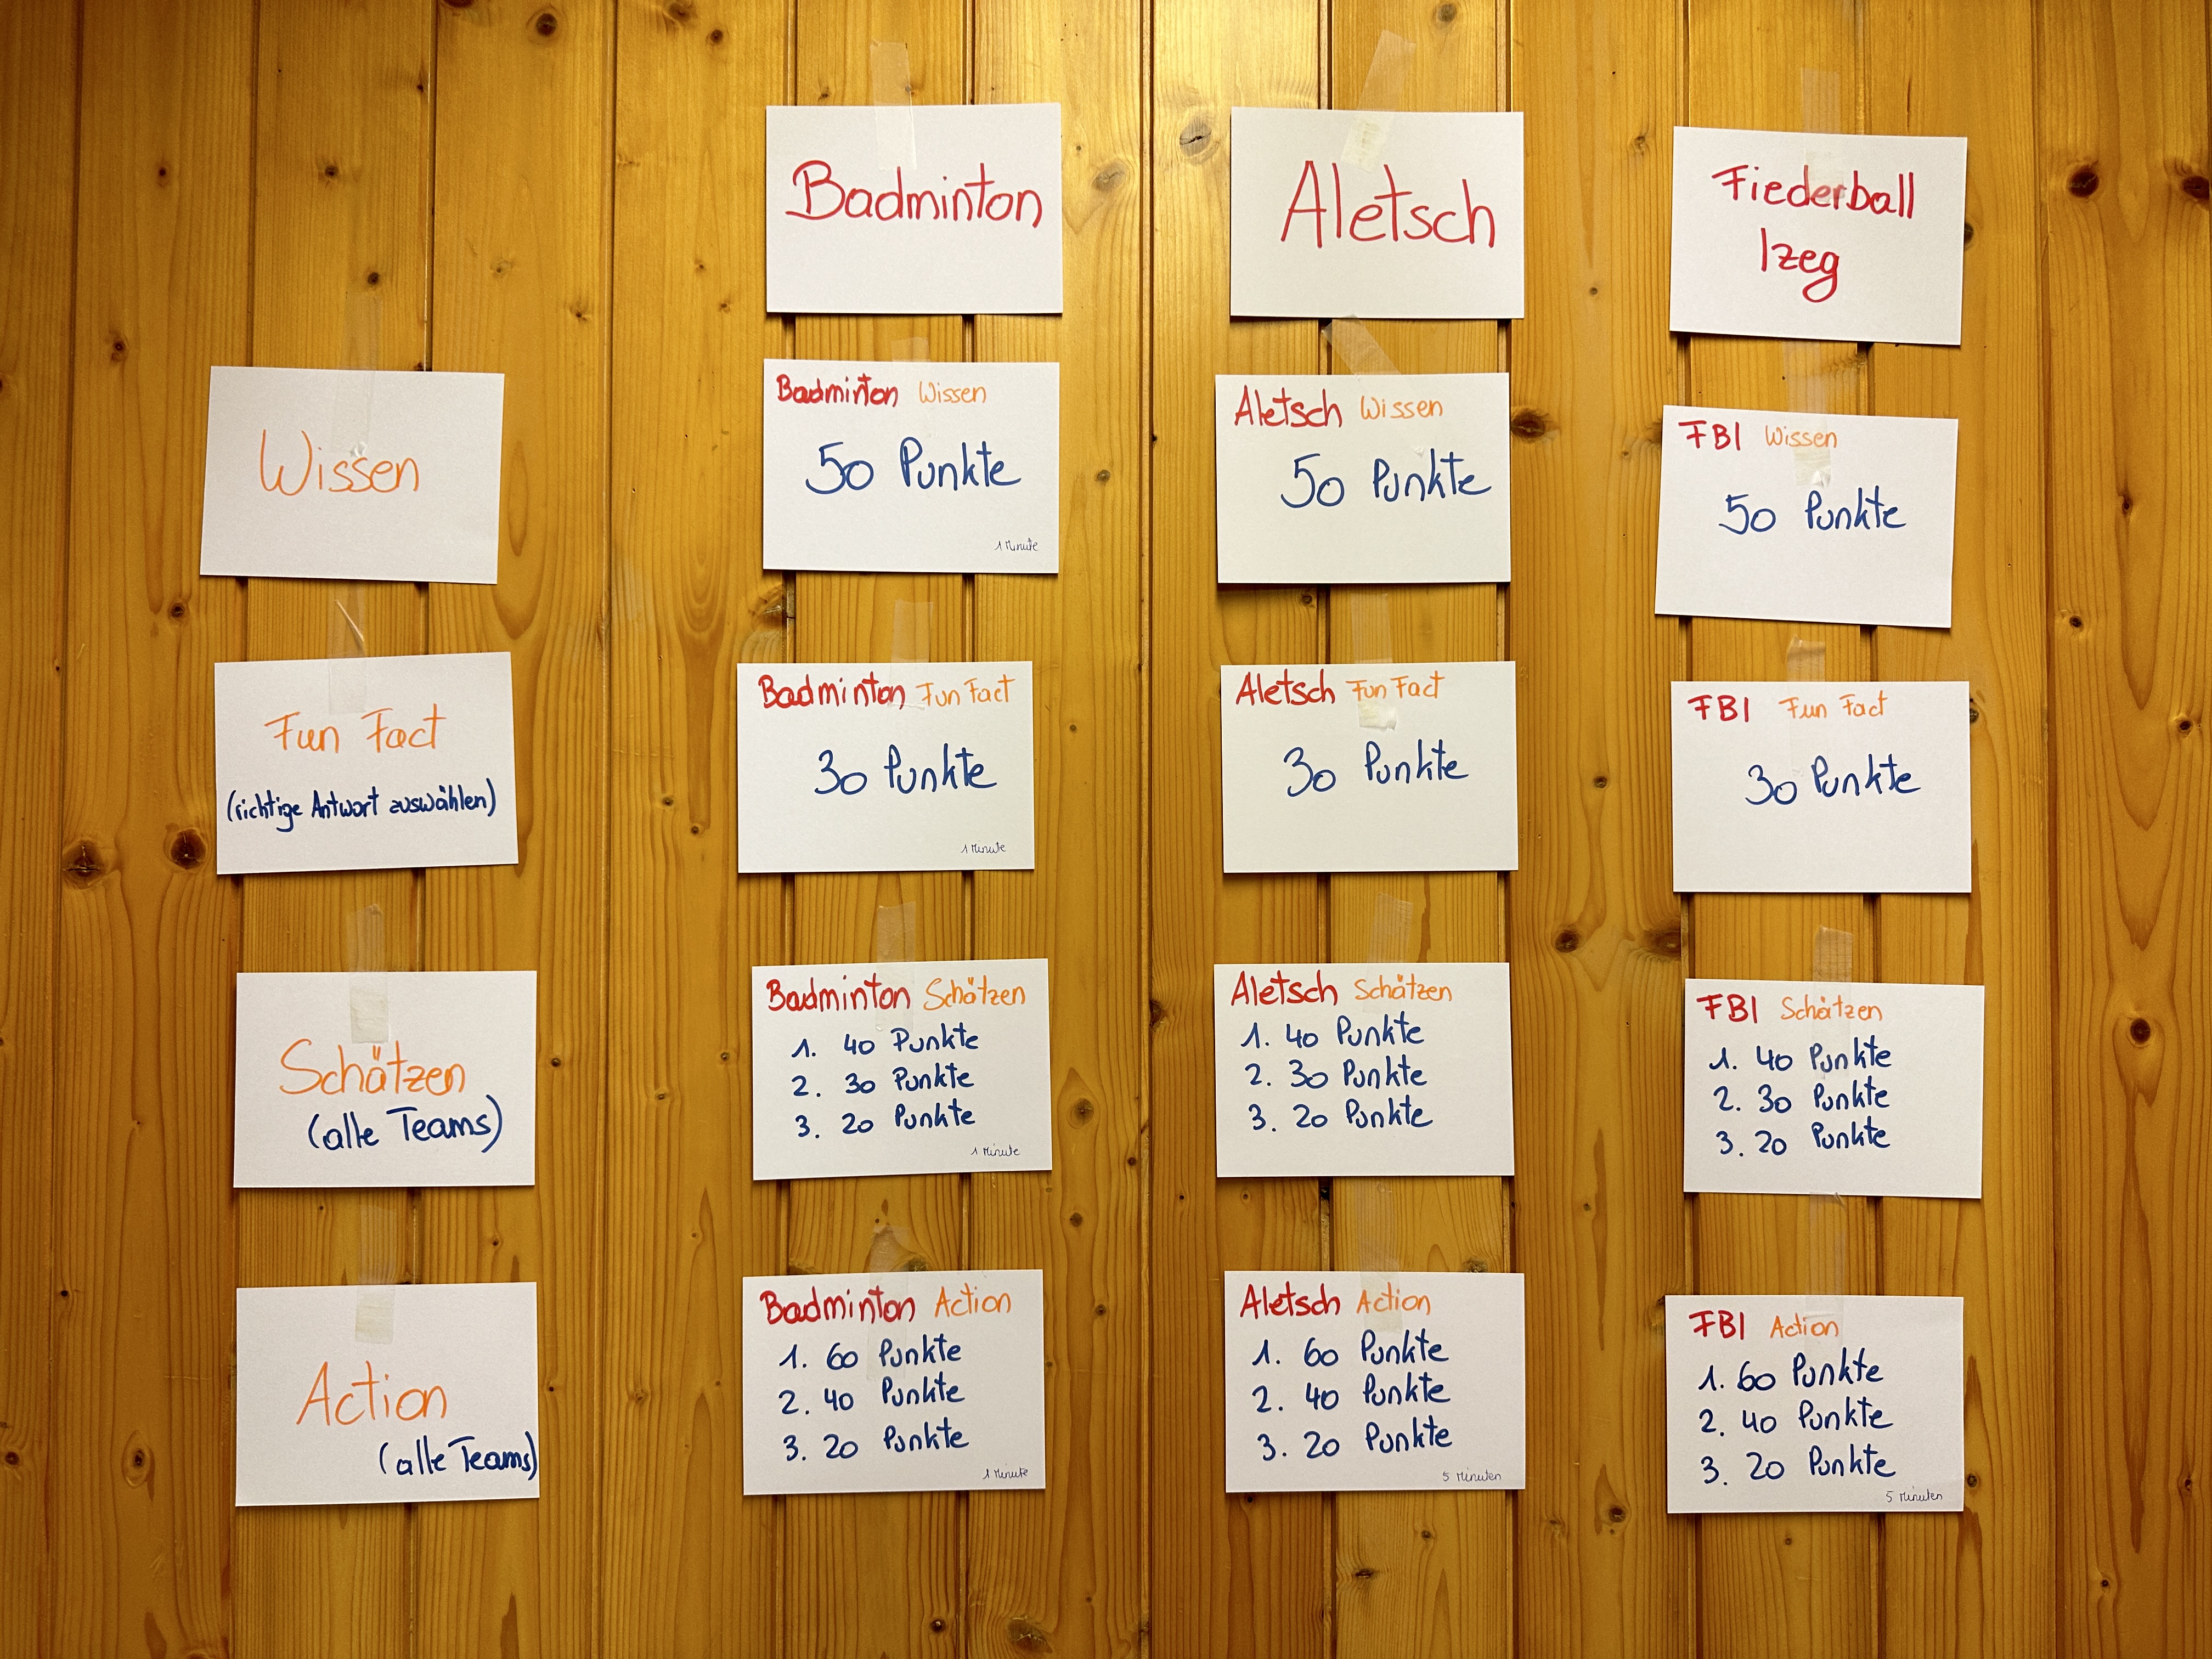 Badminton
Aletsch
Fiederball
Izeg
Wissen
Badminton Wissen
50 Punkte
1 Minute
Aletsch Wissen
50 Punkte
FBI Wissen
50 Punkte
Fun Fact
(richtige Antwort auswählen)
Badminton Fun Fact
30 Punkte
1 Minute
Aletsch Fun Fact
30 Punkte
FBI Fun Fact
30 Punkte
Schätzen
(alle Teams)
Badminton Schätzen
1. 40 Punkte
2. 30 Punkte
3. 20 Punkte
1 Minute
Aletsch Schätzen
1. 40 Punkte
2. 30 Punkte
3. 20 Punkte
FBI Schätzen
1. 40 Punkte
2. 30 Punkte
3. 20 Punkte
Action
(alle Teams)
Badminton Action
1. 60 Punkte
2. 40 Punkte
3. 20 Punkte
1 Minute
Aletsch Action
1. 60 Punkte
2. 40 Punkte
3. 20 Punkte
5 Minuten
FBI Action
1. 60 Punkte
2. 40 Punkte
3. 20 Punkte
5 Minuten